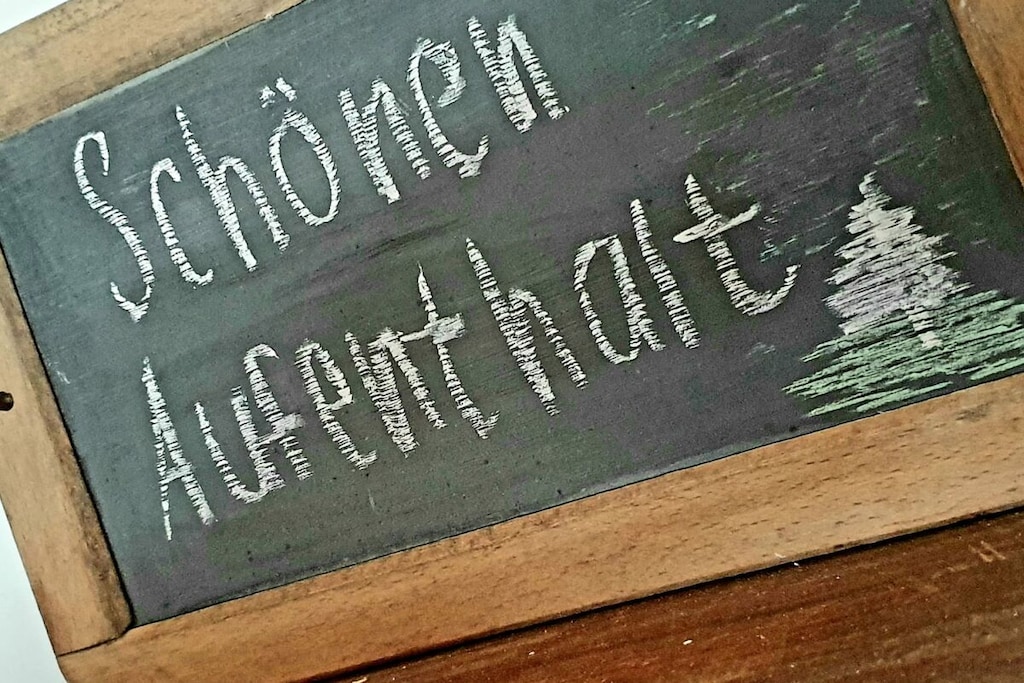 Schönen
Aufenthalt